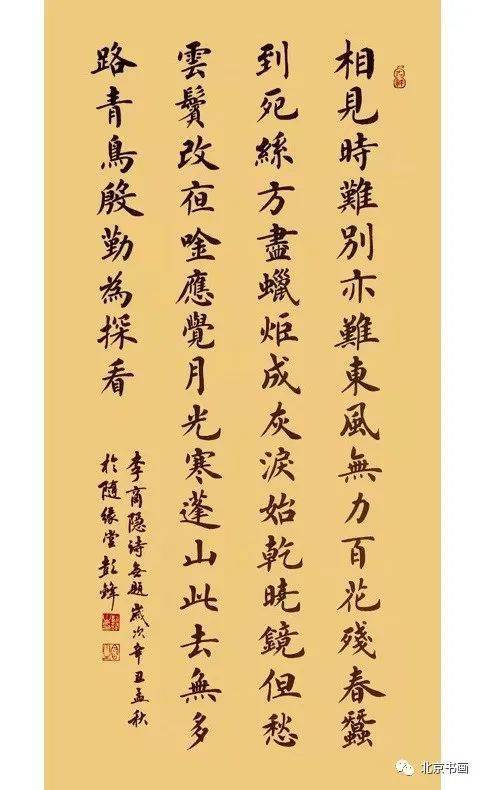 相見時難別亦難東風無力百花殘春蠶
到死絲方盡蠟炬成灰淚始乾曉鏡但愁
雲鬢改夜唫應覺月光寒蓬山此去無多
路青鳥殷勤為探看
李商隐诗无题歲次辛丑孟秋
於随缘堂彭
北京书画